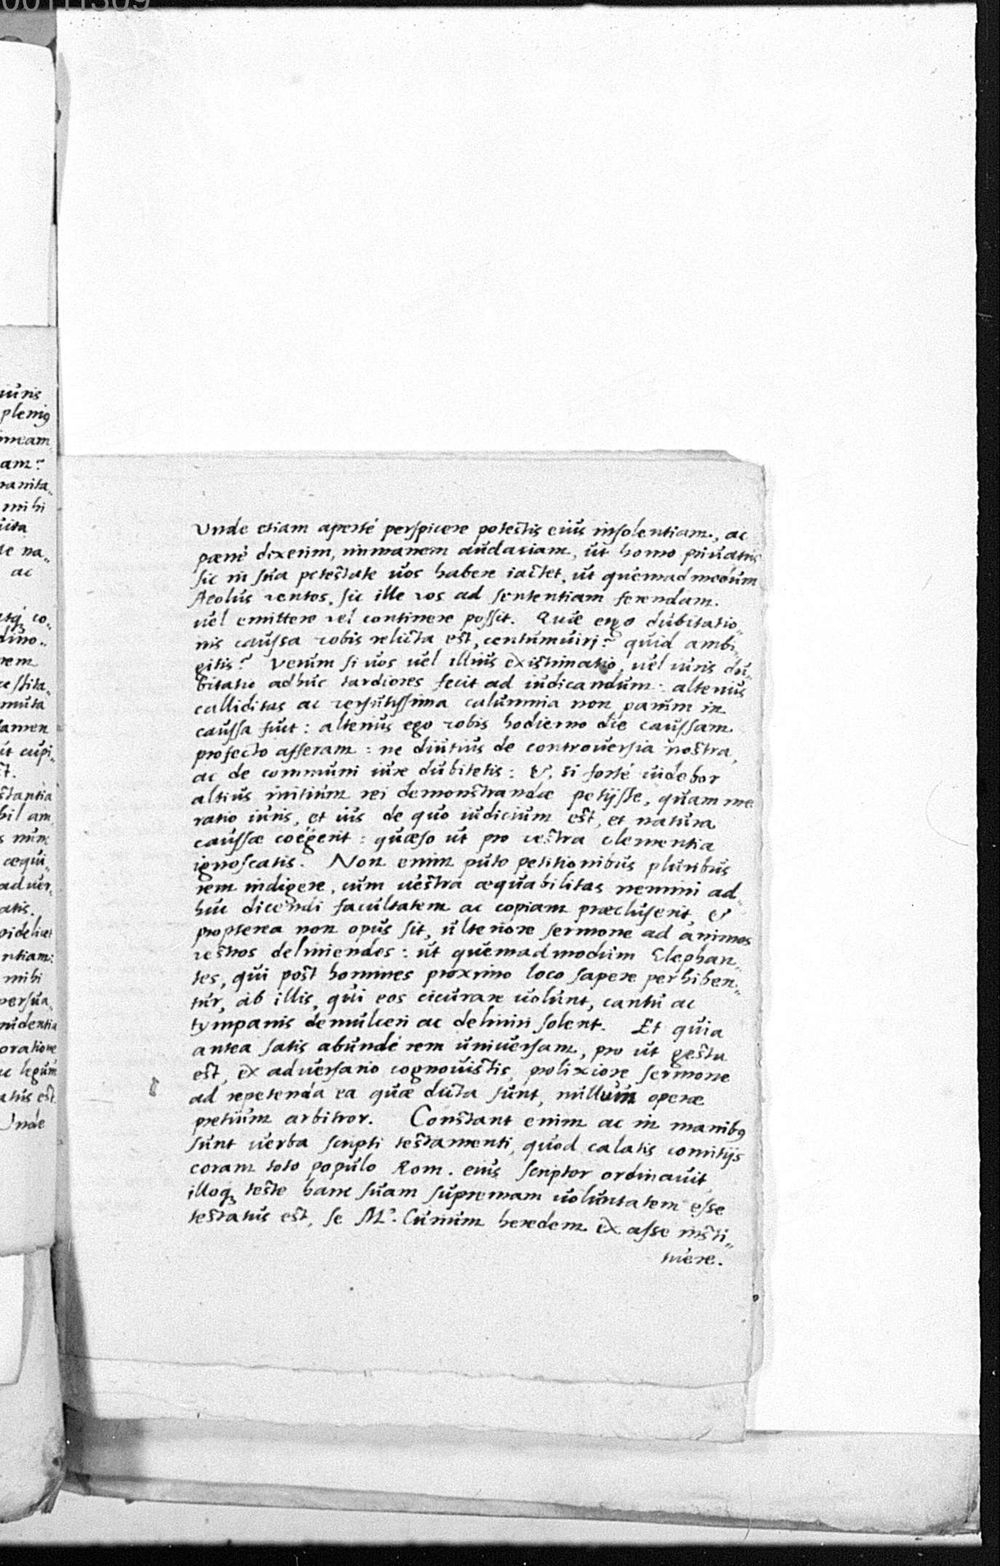 00111309
iuris
pleniꝰ
imeam
am?
ranita„
mihi
uita
te na„
ac
atqꝫ co„
dino„
rem
cestita„
muta
tamen
ut cupi„
st.
stantia
bil am„
s nun„
æqui„
adver„
atis.
videlicet
ntiam:
mihi
persua„
rudentia
oratione
c legum
atus est
Unde
Unde etiam aperté perspicere potestis eius insolentiam, ac
pæné dixerim, inmanem audaciam, ut homo privatus
sic in sua potestate uos habere iactet, ut quemadmodum
Aeolus ventos, sic ille vos ad sententiam ferendam
uel emittere vel continere possit. Quæ ergo dubitatio„
nis caussa vobis relicta est, centumuiri? quid ambi„
gitis? Verùm si uos uel illius existimatio, uel iuris du„
bitatio adhuc tardiores fecit ad iudicandum: alterius
calliditas ac versutissima calumnia non parùm in
caussa fuit: alterius ego vobis hodierno die caussam
profecto afferam: ne diutius de controversia nostra,
ac de communi iure dubitetis: &, si forté uidebor
altius initium rei demonstrandæ petijsse, quam me
ratio iuris, et uis de quo iudicium est, et natura
caussæ coëgerit: quæso ut pro vestra clementia
ignoscatis. Non enim puto petitionibus pluribus
rem indigere, cum uestra æquabilitas nemini ad„
huc dicendi facultatem ac copiam præcluserit, et
propterea non opus sit, ulteriore sermone ad animos
vestros deliniendos: ut quemadmodum Elephan„
tes, qui post homines proximo loco sapere perhiben„
tur, ab illis, qui eos cicurare uolunt, cantu ac
tympanis demulceri ac deliniri solent. Et quia
antea satis abundé rem universam, pro ut gesta
est, ex adversario cognouistis, prolixiore sermone
ad repetenda ea quæ dicta sunt, nullum operæ
pretium arbitror. Constant enim ac in manibꝰ
sunt uerba scripti testamenti, quod calatis comitijs
coram toto populo Rom. eius scriptor ordinauit
illoqꝫ teste hanc suam supremam uoluntatem esse
testatus est, se M'. Curium heredem ex asse insti„
tuere.